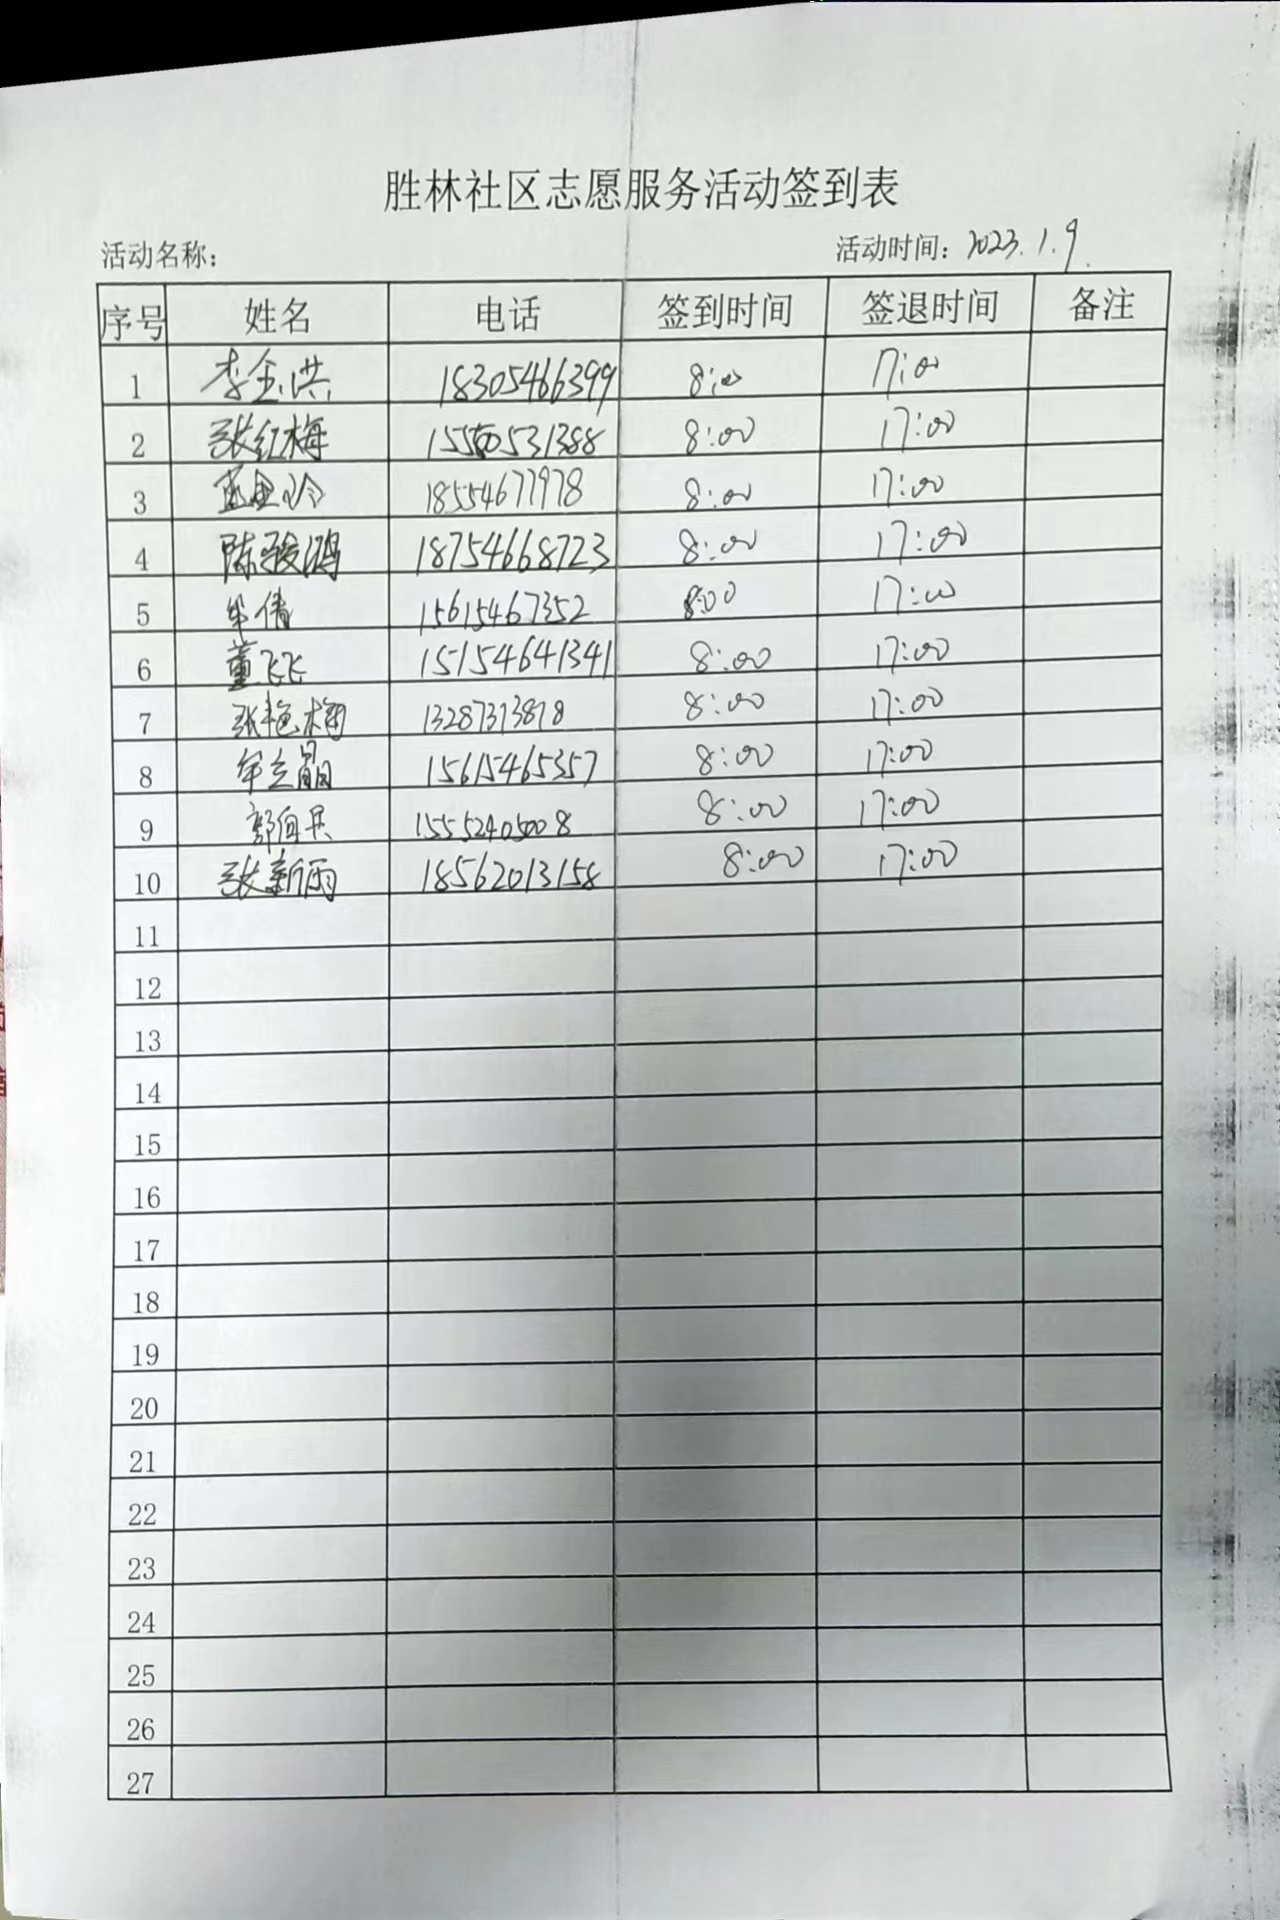 胜林社区志愿服务活动签到表
活动名称: 活动时间: 2023.1.9
序号 姓名 电话 签到时间 签退时间 备注
1 李金洪 18305466399 8:00 17:00
2 张红梅 15505531388 8:00 17:00
3 18554677978 8:00 17:00
4 陈骏鸿 18754668723 8:00 17:00
5 牟倩 15615467352 8:00 17:00
6 董飞飞 15154641341 8:00 17:00
7 张艳梅 13287313818 8:00 17:00
8 牟立晶 15615465357 8:00 17:00
9 15552405008 8:00 17:00
10 张新雨 18562013158 8:00 17:00
11
12
13
14
15
16
17
18
19
20
21
22
23
24
25
26
27